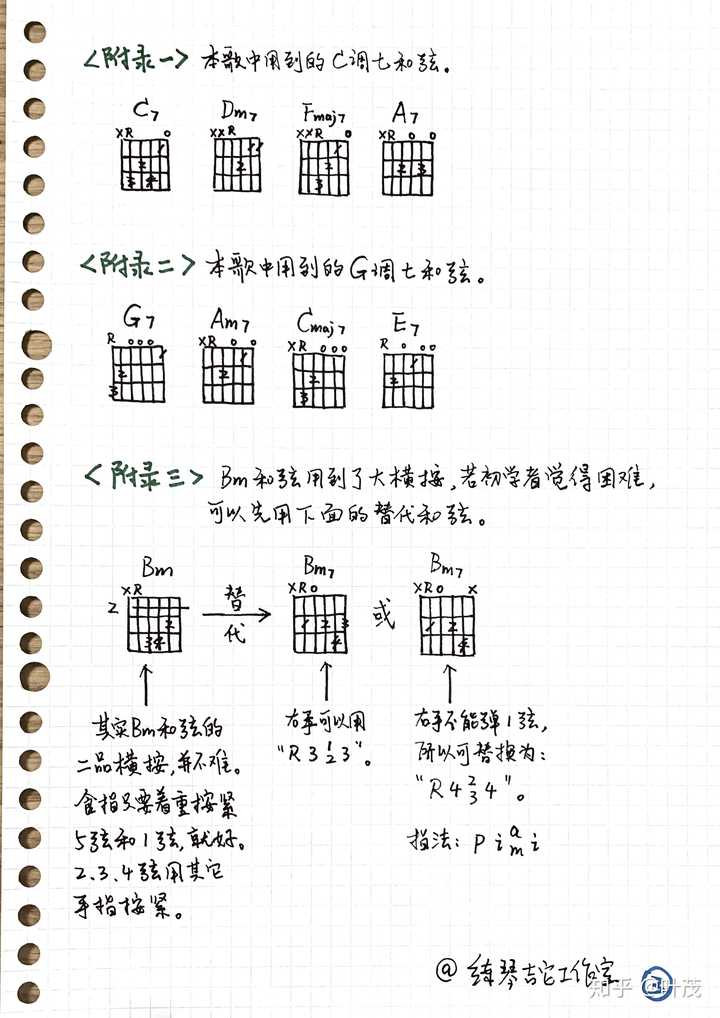 <附录一> 本歌中用到的C调七和弦。
C7 Dm7 Fmaj7 A7
XR O XXR XXR O XR O O
1 11 1
2 2 2 2 3
3 4 3
<附录二> 本歌中用到的G调七和弦。
G7 Am7 Cmaj7 E7
R OOO XR O O XR OOO R O OO
1 1 1
2 2 2 2
3 3
<附录三> Bm和弦用到了大横按,若初学者觉得困难,
可以先用下面的替代和弦。
Bm Bm7 Bm7
XR 替 XRO 或 XRO X
2 代
2 1 2 3 1 2
34 4 4
其实Bm和弦的
二品横按,并不难。
食指只要着重按紧
5弦和1弦,就好。
2.3.4弦用其它
手指按紧。
右手可以用
“R 3 1 2 3”。
右手不能弹1弦,
所以可替换为:
“R 4 2 3 4”。
指法: P i a m i
@练琴吉它工作室
知乎 @叶茂